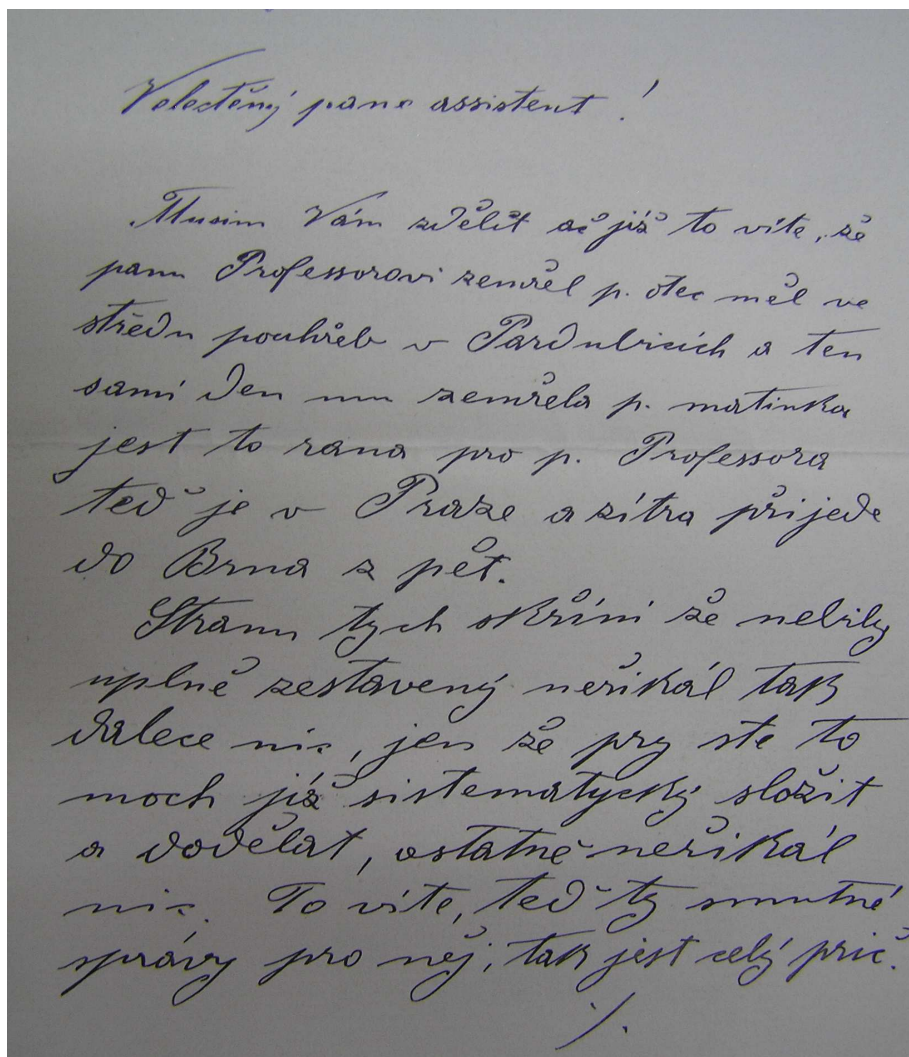 Velectěný pane assistent!
Musim Vám zdělit ač již to víte, že
panu Professorovi zemřel p. otec měl ve
středu pouhřeb v Pardubicích a ten
samí den mu zemřela p. matinka
jest to rana pro p. Professora
teď je v Praze a zítra přijede
do Brna z pět.
Stranu tych skříní že nebily
uplně zestavený neřikál tak
dalece nic, jen že pry ste to
moch již sistematycký složit
a dodělat, ostatně neřikál
nic. To víte, teď ty smutné
správy pro něj, tak jest celý prič.
./.